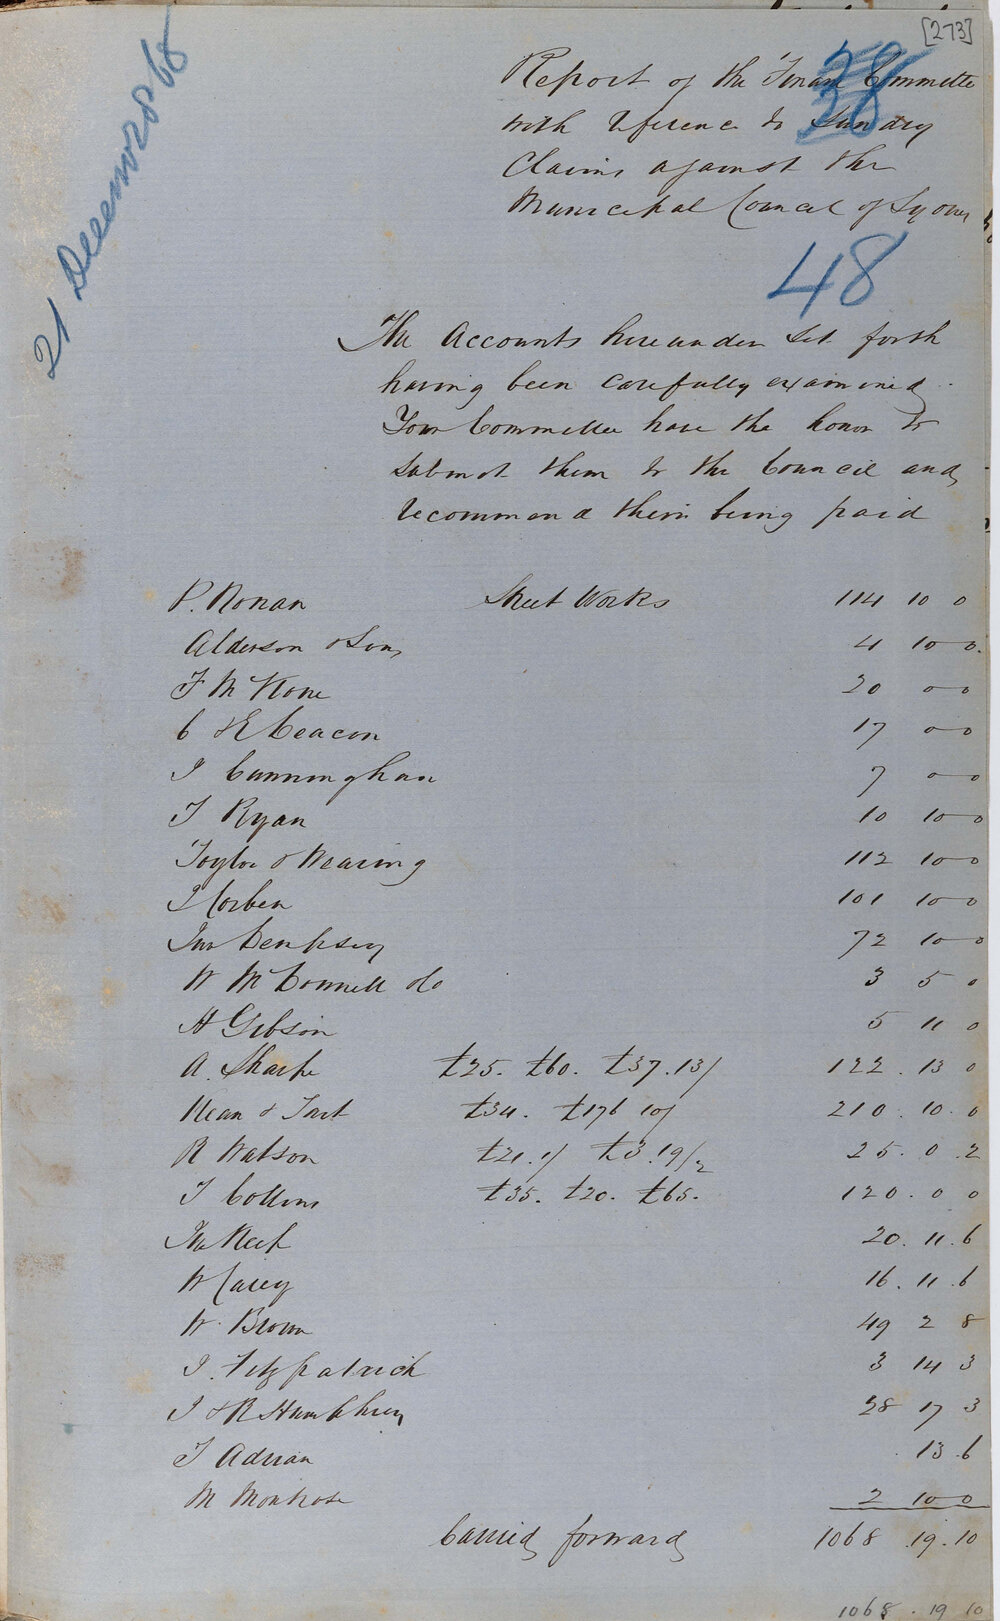 [273]
21 December 68
38
Report of the Finance Committee
with reference to Sundry
Claims against the
Municipal Council of Sydney
48
The Accounts hereunder set forth
having been carefully examined
Your Committee have the honor to
submit them to the Council and
recommend their being paid
P. Ronan Street Works 114 10 0
Alderson & Sons 4 10 0
F M 20 0 0
C & E Deacon 17 0 0
J Cunningham 7 0 0
T Ryan 10 10 0
Taylor & Wearing 112 10 0
J Corben 101 10 0
Jno Dempsey 72 10 0
W McDonnell & Co 3 5 0
H Gibson 5 11 0
A. Sharpe £25. £60. £37.13/ 122 . 13 0
Kean & Tart £34. £176 10/ 210 . 10 . 0
R Watson £21.1/ £3.19/2 25 . 0 . 2
T Collins £35. £20. £65. 120 . 0 0
Jno Keep 20 . 11 . 6
W Carey 16 . 11 . 6
W. Brown 49 2 8
J. Fitzpatrick 3 14 3
J & R Humphrey 28 17 3
T Adrian 13 . 6
M Montrose 2 10 0
Carried forward 1068 . 19 . 10
1068 . 19 10